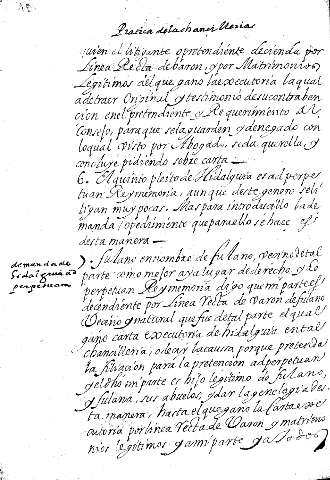 Pratica de las chancillerias
quien el litigante o pretendiente decienda por
Linea Recta de baron, y por Matrimonios
Legitimos del que gano la executoria la qual
a de traer Original y testimonio de su contraben
cion en el pretendiente o Requerimiento al
Consejo, para que se la guarden, y denegado con
lo qual visto por Abogado, se da querella, y
concluye pidiendo sobre carta —
6. El quinto pleito de Hidalguia es ad perpe
tuan Rey memoria, aunque deste genero se li
tigan muy pocas. Mas para introducillo la de
manda o pedimiento que para ello se hace es
desta manera —
demanda de
hidalguia ad
perpetuam
7. fulano en nombre de fulano, vecino de tal
parte como mejor aya lugar de derecho, y ad
perpetuan Rey memoria digo que mi parte es
decendiente por Linea Recta de Varon de fulano
Vecino y natural que fue de tal parte el qual
gano carta executoria de hidalguia en tal
chancilleria, o decir la causa porque pretende
la filiacion para la pretencion ad perpetuan
y el dho mi parte es hijo legitimo de fulano,
y fulana, sus abuelos, y dar la genelogia des
ta manera, hasta el que gano la Carta exe
cutoria por linea Recta de Varon y matrimo
nios legitimos y a mi parte y a todos